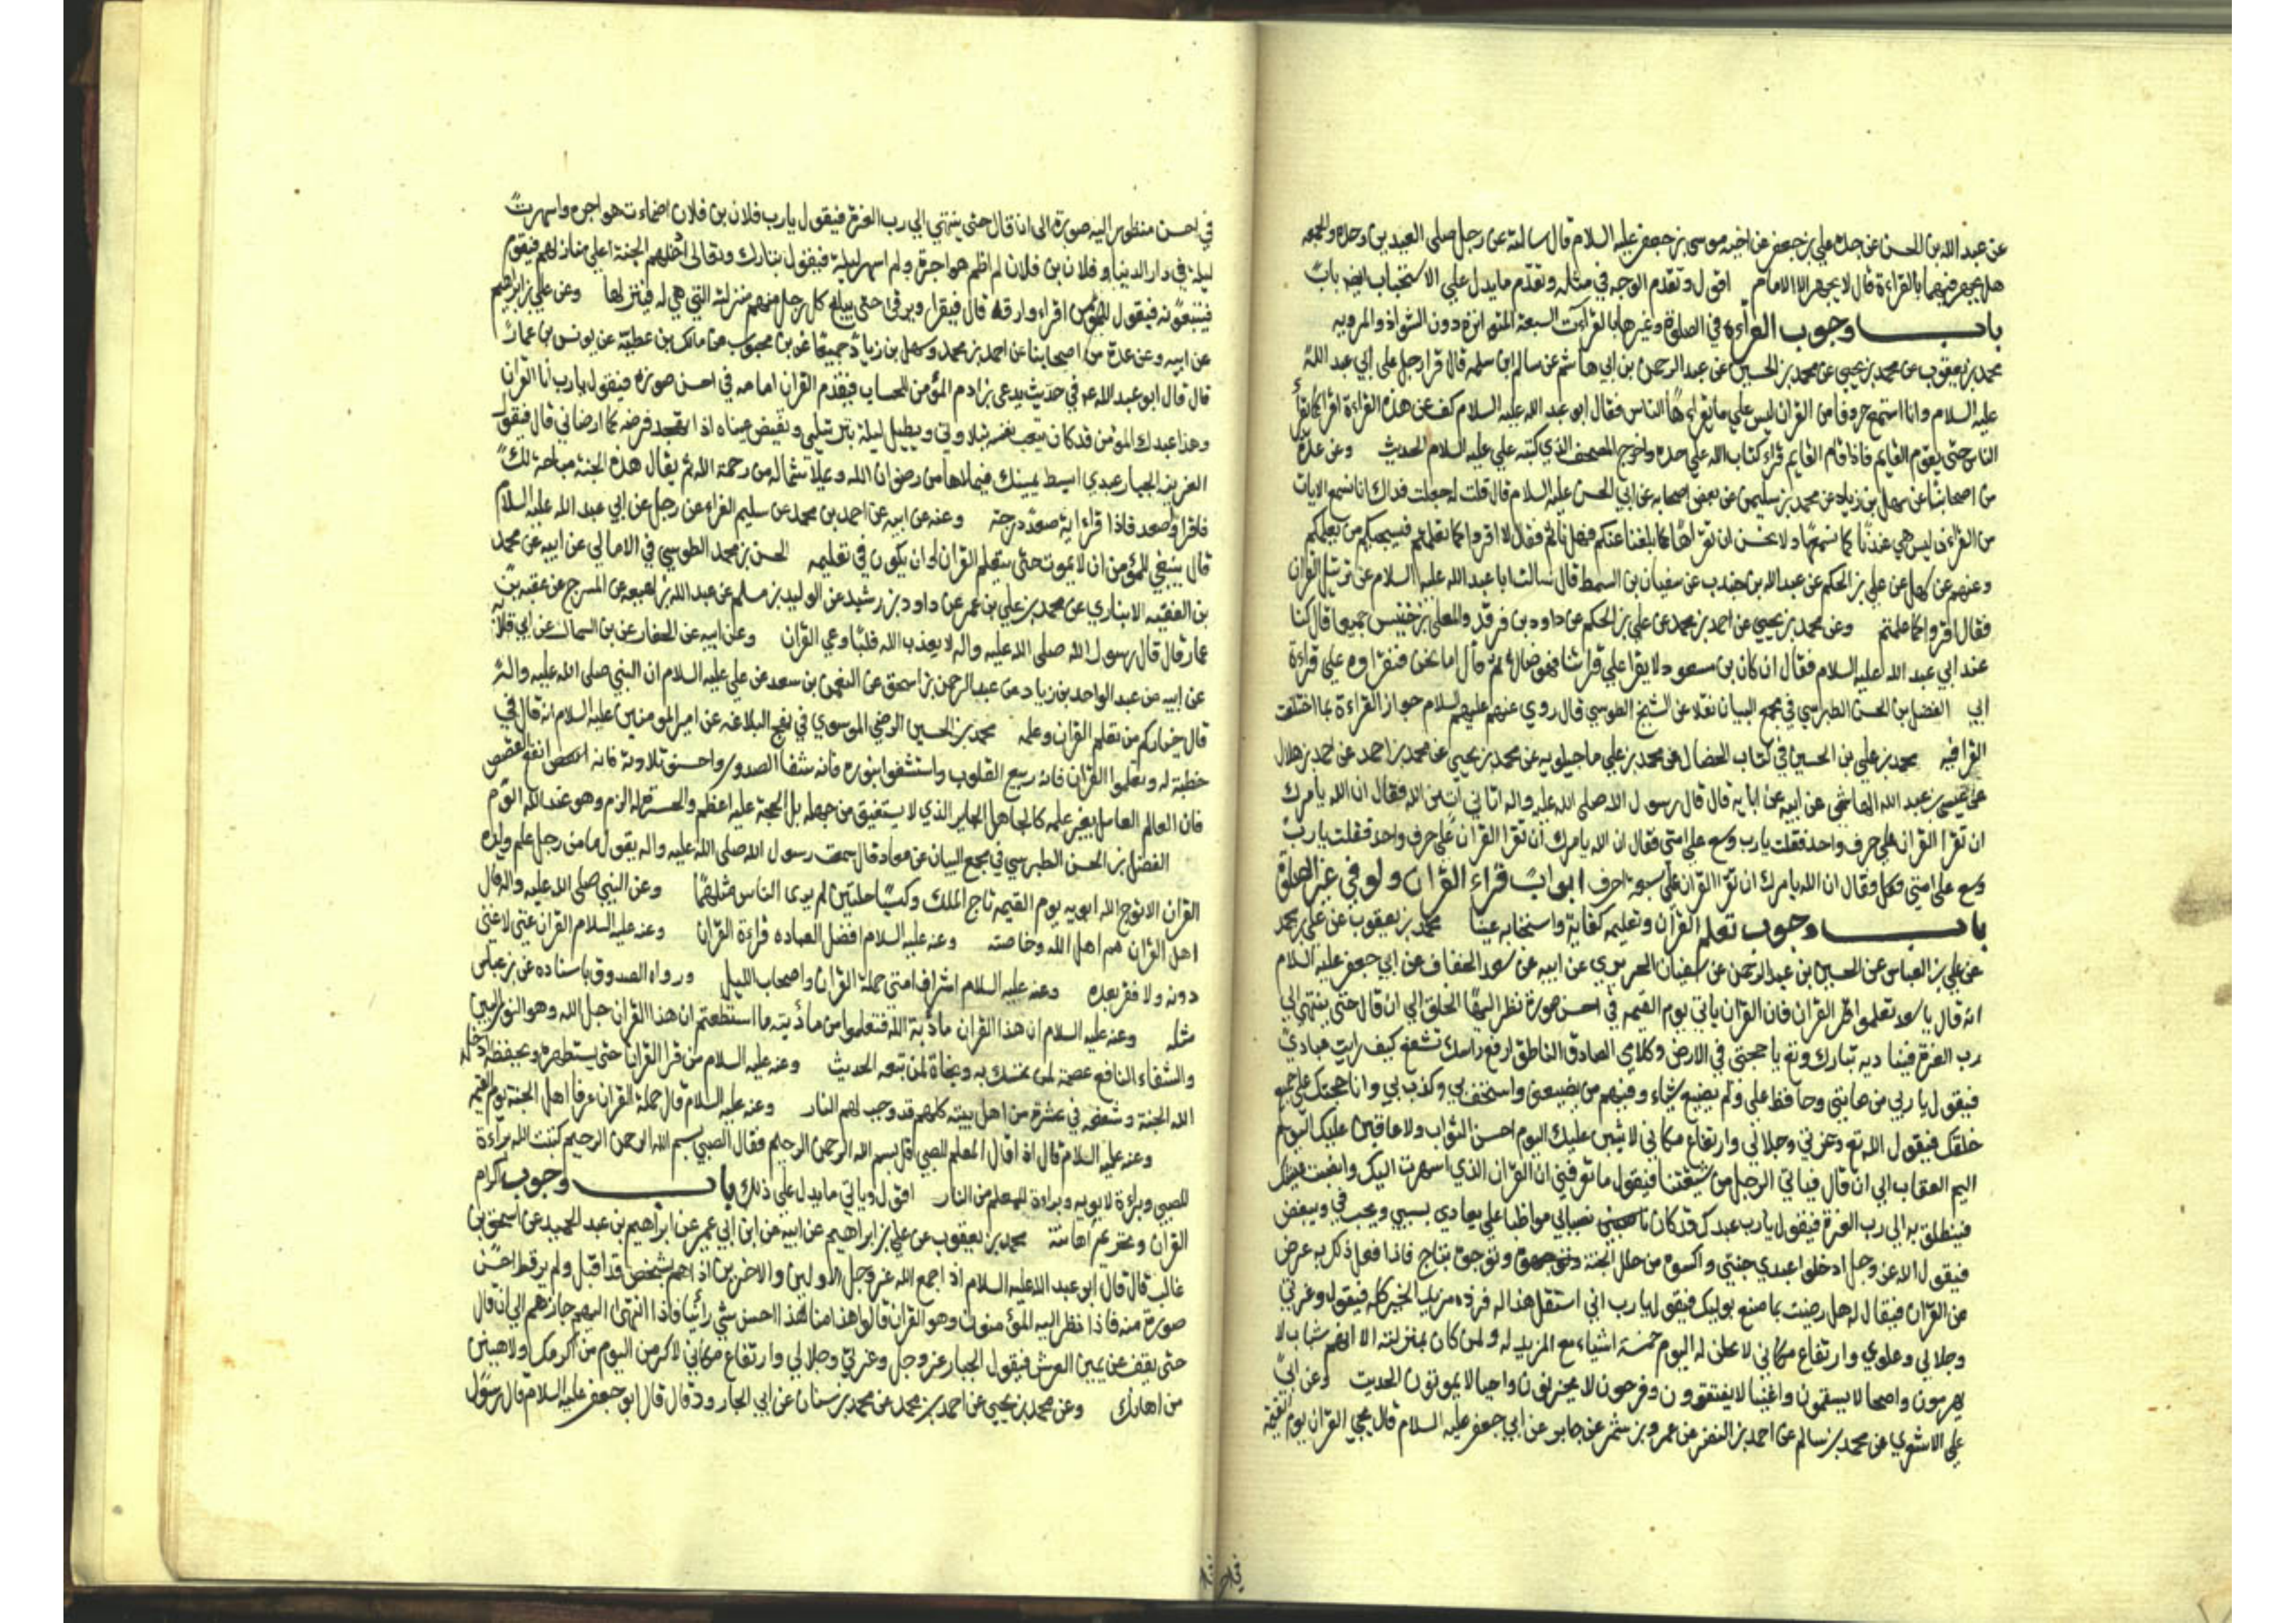 عن عبد الله بن الحسن عن جده علي بن جعفر عن اخيه موسى بن جعفر عليه السلام قال سالته عن رجل صلى العيدين وحده والجمعه
هل يجهر فيهما بالقراءة قال لا يجهر الا الامام اقول وتقدم الوجه في مثله وتقدم ما يدل علي الاستحباب
باب وجوب القراءة في الصلوة وغيرها بالقراءت السبعة المتواترة دون الشواذ والمرويه
محمد بن يعقوب عن محمد بن يحيى عن محمد بن الحسين عن عبد الرحمن بن ابي هاشم عن سالم ابن سلمه قال قرا رجل على ابي عبد الله
عليه السلام وانا استمع حروفا من القران ليس علي ما يقراءها الناس فقال ابو عبد الله عليه السلام كف عن هذه القراءة اقرا كما يقرأ
الناس حتى يقوم القايم فاذا قام القايم قراء كتاب الله علي حده واخرج المصحف الذي كتبه علي عليه السلام الحديث وعن عدة
من اصحابنا عن سهل بن زياد عن محمد بن سليمن عن بعض اصحابه عن ابي الحسن عليه السلام قال قلت له جعلت فداك انا نسمع الايات
من القران ليس هي عندنا كما نسمعها ولا نحسن ان نقراها كما بلغنا عنكم فهل ناثم فقال لا اقروا كما تعلمتم فسيجيكم من يعلمكم
وعنهم عن سهل عن علي بن الحكم عن عبد الله بن جندب عن سفيان بن السمط قال سالت ابا عبد الله عليه السلام عن ترتيل القران
فقال اقروا كما علمتم وعن محمد بن يحيى عن احمد بن محمد عن علي بن الحكم عن داود بن فرقد والمعلى بن خنيس جميعا قال كنا
عند ابي عبد الله عليه السلام فقال ان كان بن مسعود لا يقرا علي قراتنا فهو ضال ثم قال اما نحن فنقراوه علي قراءة
ابي الفضل بن الحسن الطبرسي في مجمع البيان نقلا عن الشيخ الطوسي قال روي عنهم عليهم السلام جواز القراءة بما اختلفت
القرا فيه محمد بن علي بن الحسين في كتاب الخصال عن محمد بن علي ماجيلويه عن محمد بن يحيى عن محمد بن احمد عن احمد بن هلال
عن عيسى بن عبد الله الهاشمي عن ابيه عن ابايه قال قال رسول الله صلى الله عليه واله اتاني ات من الله فقال ان الله يأمرك
ان تقرا القران علي حرف واحد فقلت يا رب وسع على امتي فقال ان الله يامرك ان تقرا القران علي حرف واحد فقلت يا رب
وسع على امتي فقال ان الله يامرك ان تقرا القران علي سبعة احرف ابواب قراءة القران ولو في غير الصلوة
باب وجوب تعلم القرآن وتعليمه كفاية واستحبابه عينا محمد بن يعقوب عن علي بن محمد
عن علي بن العباس عن الحسين بن عبد الرحمن عن سفيان الحريري عن ابيه عن سعد الخفاف عن ابي جعفر عليه السلام
انه قال يا سعد تعلموا القران فان القران ياتي يوم القيمه في احسن صورة نظر اليها الخلق الي ان قال حتى ينتهي الي
رب العزة فيناديه تبارك وتع يا حجتي في الارض وكلامي الصادق الناطق ارفع راسك تشفع كيف رايت عبادي
فيقول يا ربي منهم من صانني وحافظ علي ولم يضيع شياء ومنهم من يضيعني واستخف بي وكذب بي وانا حجتك علي جميع
خلقك فيقول الله تع وعزتي وجلالي وارتفاع مكاني لاثيبن عليك اليوم احسن الثواب ولاعاقبن عليك اليوم
اليم العقاب الي ان قال فياتي الرجل من شيعتنا فيقول ما تعرفني انا القران الذي اسهرت ليلك وانصبت عيشك
فينطلق به الي رب العزة فيقول يا رب عبدك قد كان نصبا بي مواظبا علي يعادي بسببي ويحب في ويبغض
فيقول الله عز وجل ادخلوا عبدي جنتي واكسوه من حلل الجنة وتوجوه بتاج فاذا فعل ذلك به عرض
عن القران فيقال له هل رضيت بما صنع بوليك فيقول يا رب اني استقل هذا له فزده مزيد الخير كله فيقول وعزتي
وجلالي وعلوي وارتفاع مكاني لاعطين له اليوم خمسة اشياء مع المزيد له ولمن كان بمنزلته الا انهم شباب لا
يهرمون واصحا لا يسقمون واغنيا لا يفتقرون وفرحون لا يحزنون واحيا لا يموتون الحديث وعن ابي
علي الاشعري عن محمد بن سالم عن احمد بن النضر عن عمرو بن شمر عن جابر عن ابي جعفر عليه السلام قال يجي القران يوم القيمة
في احسن منظور اليه صورة الى ان قال حتى ينتهي الي رب العزة فيقول يا رب فلان بن فلان اضماءت هواجره واسهرت
ليلة في دار الدنيا وفلان بن فلان لم اظم هواجره ولم اسهر ليلة فيقول تبارك وتعالى ادخلهم الجنة اعلي منازلهم فيقوم
فيتبعونه فيقول للمؤمن اقراء وارقه قال فيقرا ويرقى حتى يبلغ كل رجل منهم منزلته التي هي له فينزلها وعن علي بن ابراهيم
عن ابيه وعن عدة من اصحابنا عن احمد بن محمد وسهل بن زياد جميعا عن بن محبوب عن مالك بن عطية عن يونس بن عمار
قال قال ابو عبد الله عه في حديث يدعى بن ادم المؤمن للحساب فيقدم القران امامه في احسن صورة فيقول يا رب انا القران
وهذا عبدك المؤمن قد كان يتعب نفسه بتلاوتي ويطيل ليلة بترتيلي وتفيض عيناه اذا تهجد فرضه كما ارضاني قال فيقول
العزيز الجبار عبدي ابسط يمينك فيملاها من رضوان الله ويملا شماله من رحمة الله ثم يقال هذه الجنة مباحة لك
فاقرا واصعد فاذا قراء اية صعد درجة وعنه عن ابيه عن احمد بن محمد عن سليم الفراء عن رجل عن ابي عبد الله عليه السلام
قال ينبغي للمؤمن ان لا يموت حتى يتعلم القران او ان يكون في تعليمه الحسن بن محمد الطوسي في الامالي عن ابيه عن محمد
بن الفقيه الانباري عن محمد بن علي بن عمر عن داود بن رشيد عن الوليد بن مسلم عن عبد الله بن لهيعه عن المسرح عن عقبه بن
عمار قال قال رسول الله صلى الله عليه واله لا يعذب الله قلبا وعي القران وعن ابيه عن الحفار عن بن السماك عن ابي قلابة
عن ابيه عن عبد الواحد بن زياد عن عبد الرحمن بن اسحق عن النعمن بن سعد عن علي عليه السلام ان النبي صلى الله عليه واله
قال خياركم من تعلم القران وعلمه محمد بن الحسين الرضي الموسوي في نهج البلاغه عن امير المومنين عليه السلام انه قال في
خطبة له وتعلموا القران فانه ربيع القلوب واستشفوا بنوره فانه شفا الصدور واحسنوا تلاوته فانه انفع القصص
فان العالم العامل بغير علمه كالجاهل الحاير الذي لا يستفيق من جهله بل الحجة عليه اعظم والحسرة له الزم وهو عند الله الوم
الفضل بن الحسن الطبرسي في مجمع البيان عن معاذ قال سمعت رسول الله صلى الله عليه واله يقول ما من رجل علم ولده
القران الا توج الله ابويه يوم القيمه تاج الملك وكسيا حلتين لم يرى الناس مثلهما وعن النبي صلى الله عليه واله قال
اهل القران هم اهل الله وخاصته وعنه عليه السلام افضل العباده قراءة القران وعنه عليه السلام القران غني لا غنى
دونه ولا فقر بعده وعنه عليه السلام اشراف امتي حملة القران واصحاب الليل ورواه الصدوق باسناده عن بن عباس
مثله وعنه عليه السلام ان هذا القران مأدبة الله فتعلموا من مأدبته ما استطعتم ان هذا القران حبل الله وهو النور المبين
والشفاء النافع عصمة لمن تمسك به ونجاة لمن تبعه الحديث وعنه عليه السلام من قرا القران حتى يستظهره ويحفظه ادخله
الله الجنة وشفعه في عشرة من اهل بيته كلهم قد وجب لهم النار وعنه عليه السلام قال حملة القران عرفا اهل الجنة يوم القيمه
وعنه عليه السلام قال اذا قال المعلم للصبي قل بسم الله الرحمن الرحيم فقال الصبي بسم الله الرحمن الرحيم كتبت الله براءة
للصبي وبراءة لابويه وبراءة للمعلم من النار اقول وياتي ما يدل على ذلك باب وجوب اكرام
القران وتحريم اهانته محمد بن يعقوب عن علي بن ابراهيم عن ابيه عن ابن ابي عمير عن ابراهيم بن عبد الحميد عن اسحق بن
غالب قال قال ابو عبد الله عليه السلام اذا جمع الله عز وجل الاولين والاخرين اذا هم بشخص قد اقبل ولم ير قط احسن
صورة منه فاذا نظر اليه المؤمنون وهو القران قالوا هذا منا هذا احسن شي راينا فاذا انتهى اليهم جازهم الي ان قال
حتى يقف عن يمين العرش فيقول الجبار عز وجل وعزتي وجلالي وارتفاع مكاني لاكرمن اليوم من اكرمك ولاهينن
من اهانك وعن محمد بن يحيى عن احمد بن محمد عن محمد بن سنان عن ابي الجارود قال قال ابو جعفر عليه السلام قال رسول